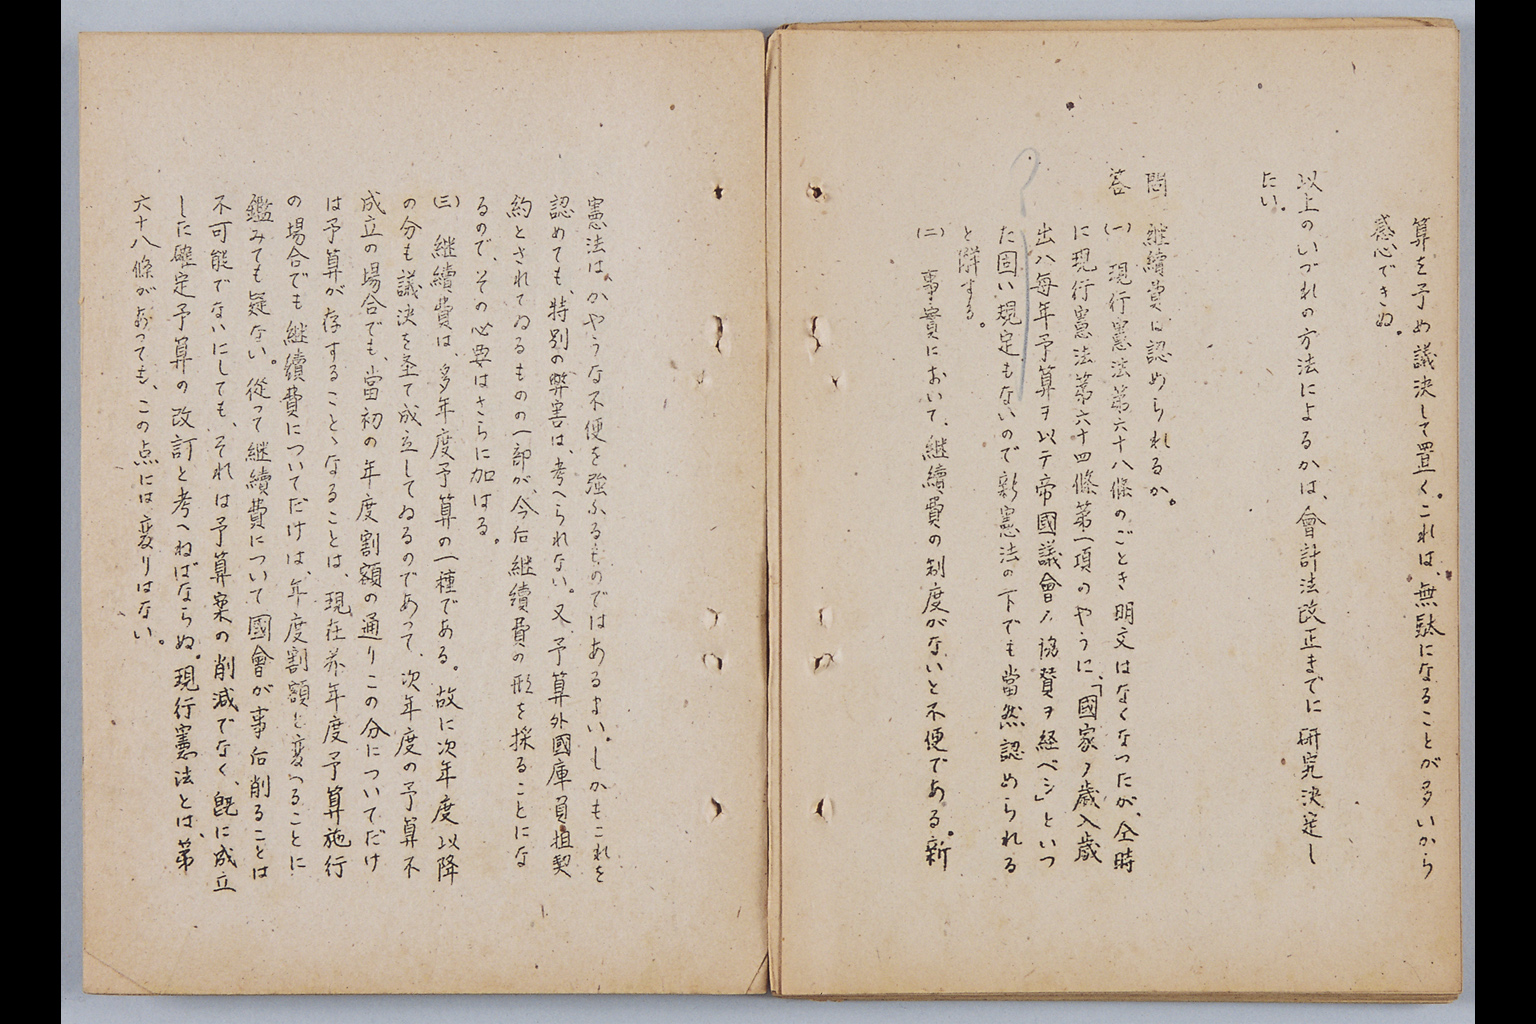 算を予め議決して置く。これは、無駄になることが多いから
感心できぬ。
以上のいづれの方法によるかは、會計法改正までに研究決定し
たい。
問 継續費は認められるか。
答 (一) 現行憲法第六十八條のごとき明文はなくなつたが、仝時
に現行憲法第六十四條第一項のやうに、「國家ノ歳入歳
出ハ毎年予算ヲ以テ帝國議會ノ協賛ヲ経ベシ」といつ
た固い規定もないので新憲法の下でも當然認められる
と解する。
(二) 事實において、継續費の制度がないと不便である。新
憲法は、かやうな不便を強ふるものではあるまい。しかもこれを
認めても、特別の弊害は、考へられない。又予算外國庫負担契
約とされてゐるものの一部が、今后継續費の形を採ることにな
るので、その必要はさらに加はる。
(三) 継續費は、多年度予算の一種である。故に次年度以降
の分も議決を経て成立してゐるのであつて、次年度の予算不
成立の場合でも、當初の年度割額の通りこの分についてだけ
は予算が存することゝなることは、現在前年度予算施行
の場合でも継續費についてだけは、年度割額と変へることに
鑑みても疑ない。從つて継續費について國會が事后削ることは
不可能でないにしても、それは予算案の削減でなく、既に成立
した確定予算の改訂と考へねばならぬ。現行憲法とは、第
六十八條があつても、この点には変りはない。